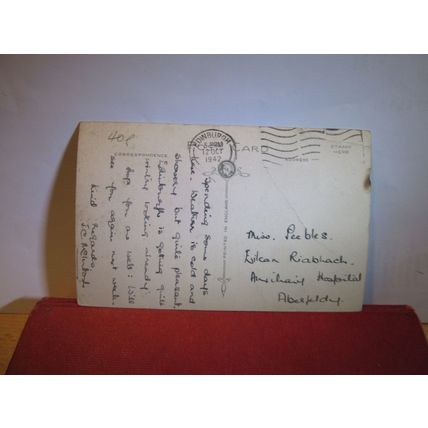 40p
POST CARD
CORRESPONDENCE
ADDRESS
STAMP HERE
EDINBURGH
12 OCT
1942
Spending some days
here. Weather is cold and
showery but quite pleasant.
Edinburgh is getting quite
wintry looking already.
Hope you are well. Will
see you again next week.
Kind Regards
Miss. Peebles.
Eilean Riabhach.
Auxiliary Hospital
Aberfeldy.